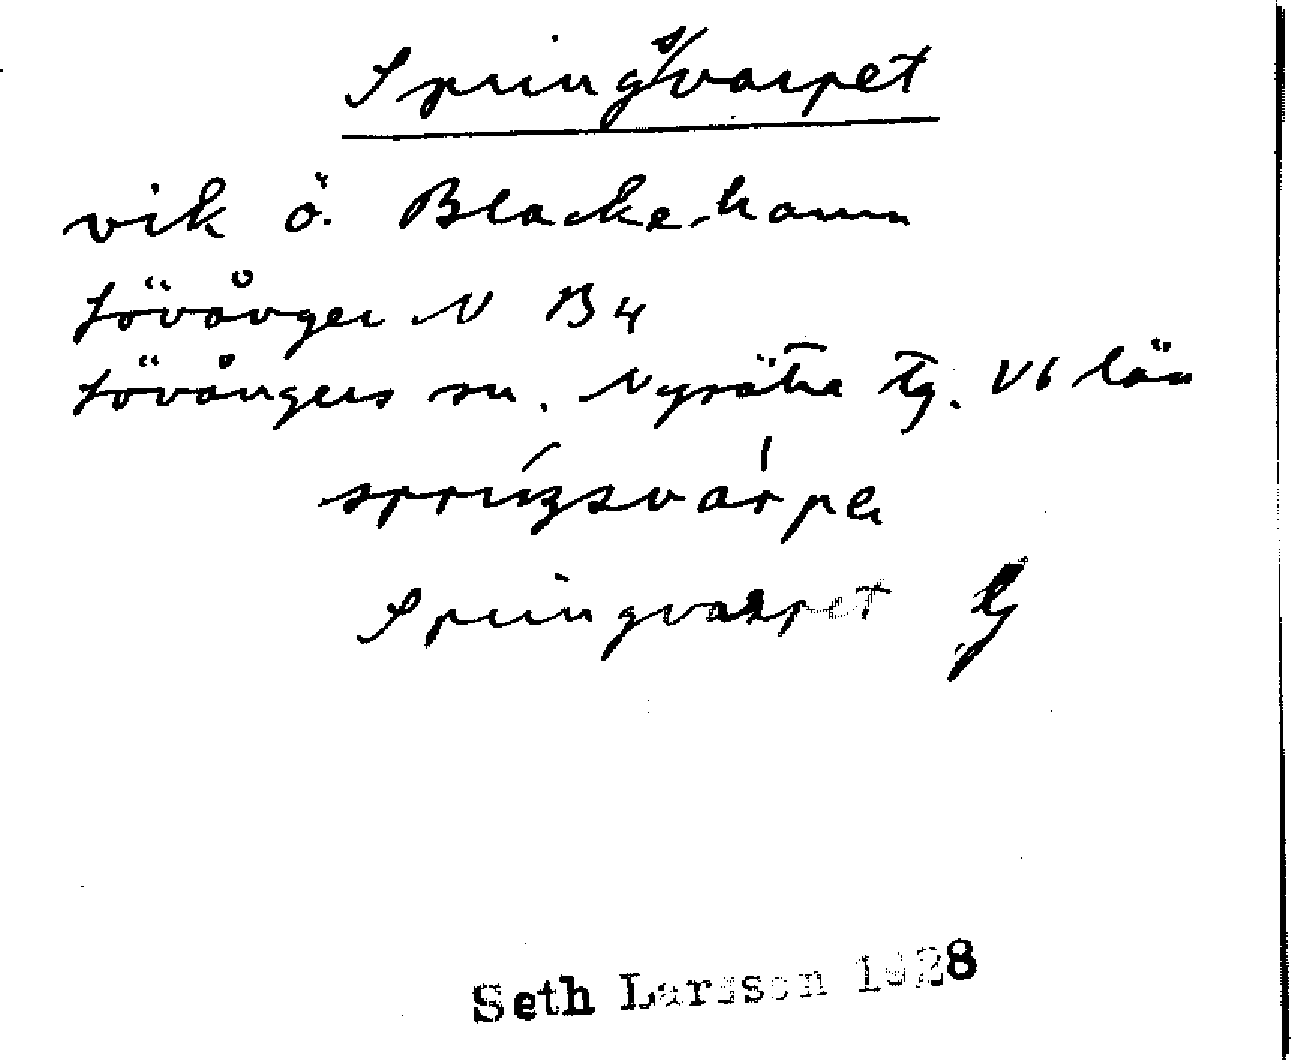 Springsvarpet
vik ö. Blackehamn
Lövånger N B 4
Lövångers sn. Nysätra tg. Vb län
sprıŋsvarpe
Springvarpet G
Seth Larsson 1928